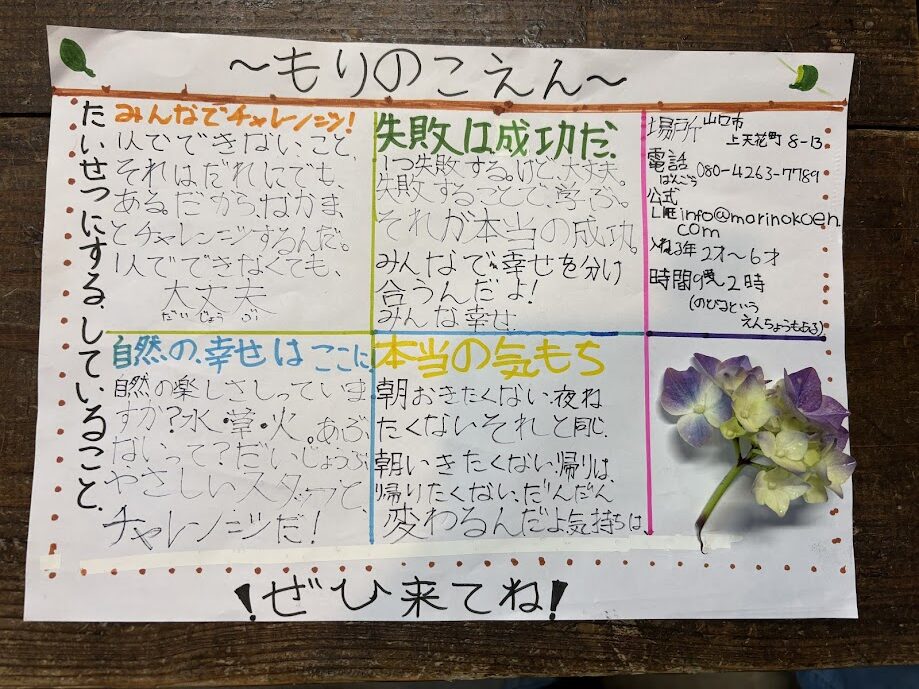 ～もりのこえん～
たいせつにする、していること、
みんなでチャレンジ！
1人でできないこと、
それはだれにでも、
ある。だから、なかま
とチャレンジするんだ。
1人でできなくても、
大丈夫
だいじょうぶ
失敗は成功だ、
1つ失敗する。けど、大丈夫。
失敗することで、学ぶ。
それが本当の成功。
みんなで幸せを分け
合うんだよ！
みんな幸せ
場所 山口市
上天花町 8-13
電話
ばんごう 080-4263-7789
公式
info@morinokoen.
com
2才～6才
時間 2時
(のびるという
えんちょうもある)
自然の、幸せはここに
自然の楽しさしっていま
すか？水・草・火。あぶ
ないって？だいじょうぶ
やさしいスタッフと、
チャレンジだ！
本当の気もち
朝おきたくない、夜ね
たくないそれと同じ、
朝いきたくない、帰りは、
帰りたくない、だんだん
変わるんだよ気持ちは、
！ぜひ来てね！